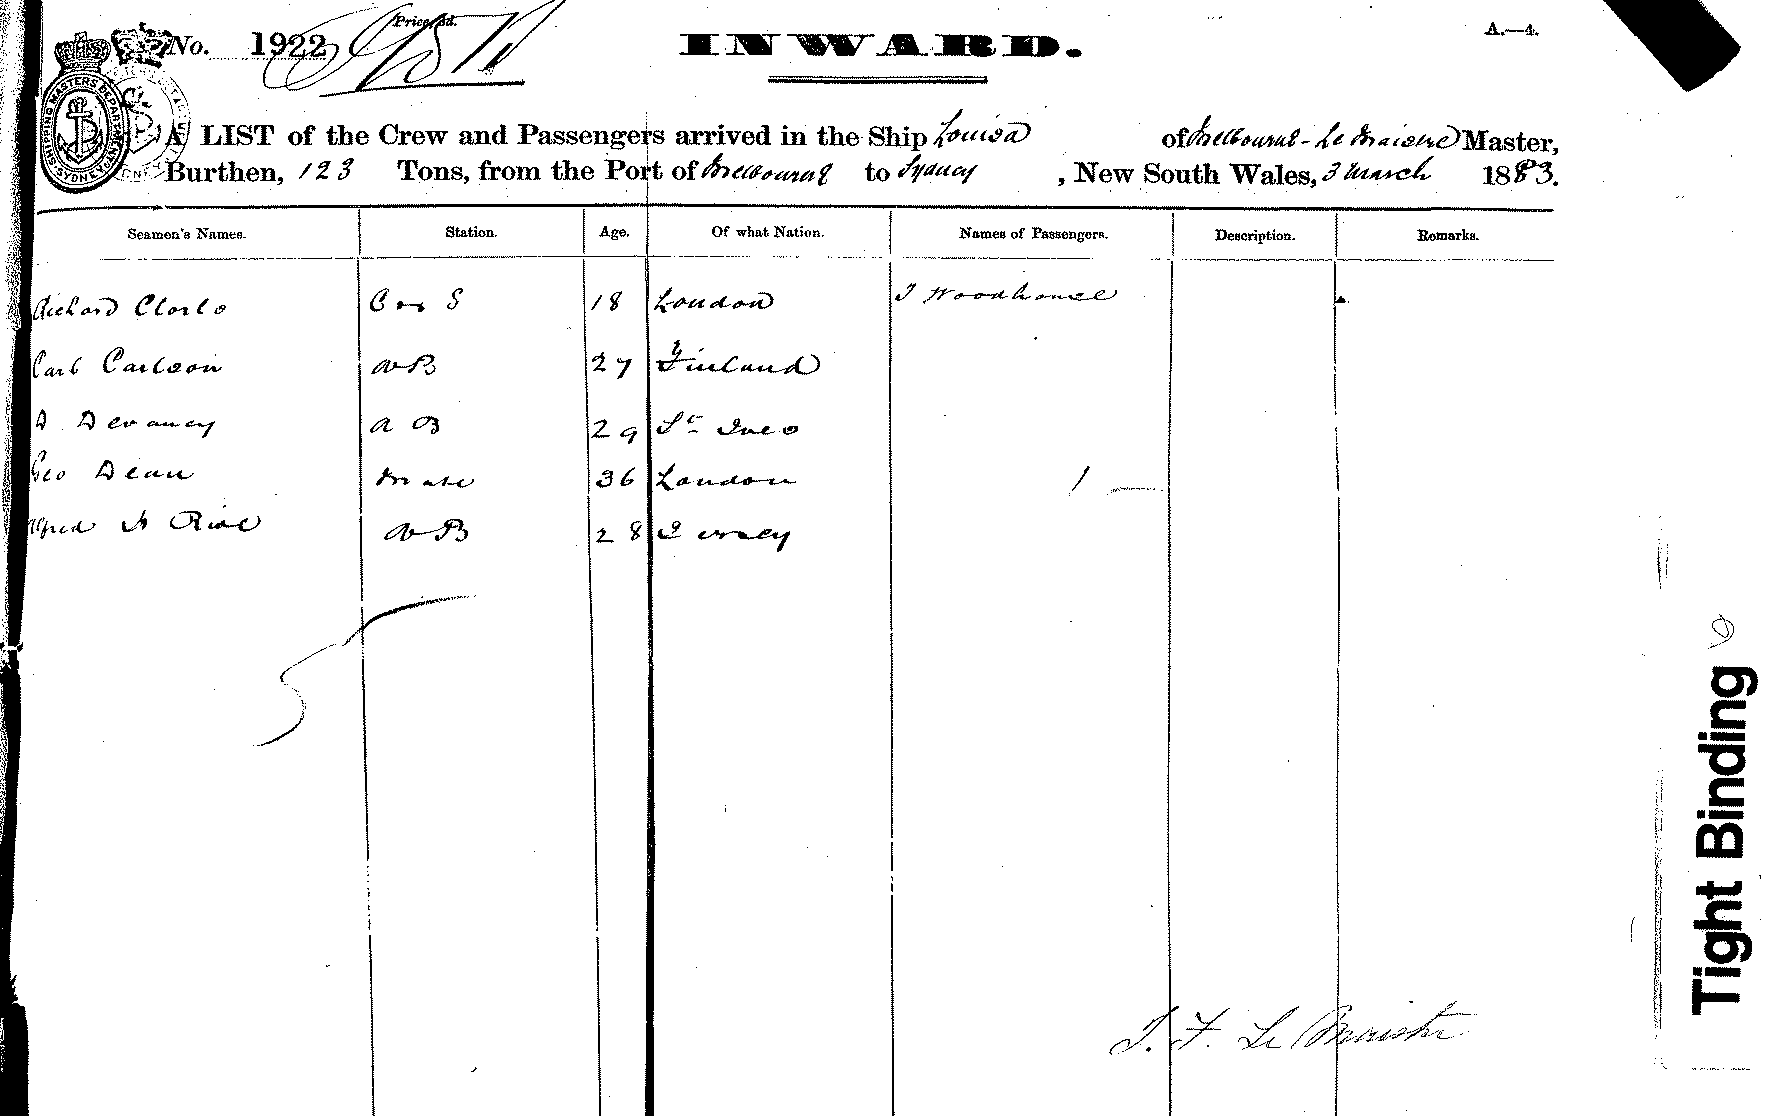 Price 3d.
No. 1922
INWARD.
A.—4.
SHIPPING MASTER'S DEPARTMENT SYDNEY
A LIST of the Crew and Passengers arrived in the Ship Louisa of Melbourne - Le Maistre Master,
Burthen, 123 Tons, from the Port of Melbourne to Sydney, New South Wales, 3 March 1883.
Seamen's Names. Station. Age. Of what Nation. Names of Passengers. Description. Remarks.
Richard 18 London J Woodhouse
Carl Carlson AB 27 Finland
D Devaney A B 29 St Ives
Geo Dean Mate 36 London 1
Alfred AB 28 Jersey
5
Le Maistre
Tight Binding